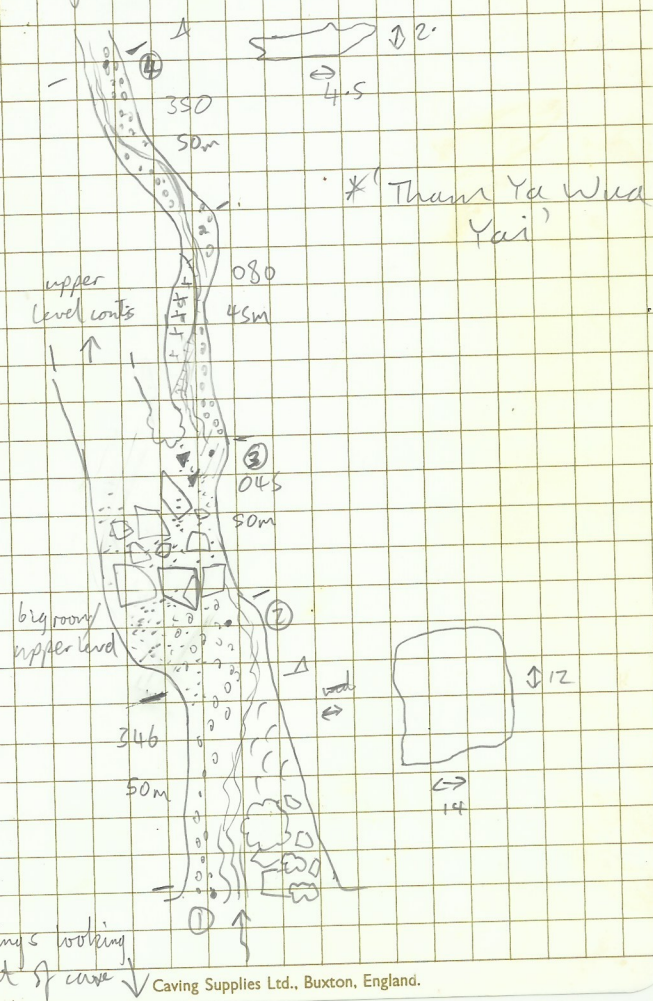 2.
4.5
4
350
50m
* 'Tham Ya Wua
Yai'
080
45m
upper
level conts
3
045
50m
2
big room/
upper level
12
14
346
50m
1
looking
of cave
Caving Supplies Ltd., Buxton, England.